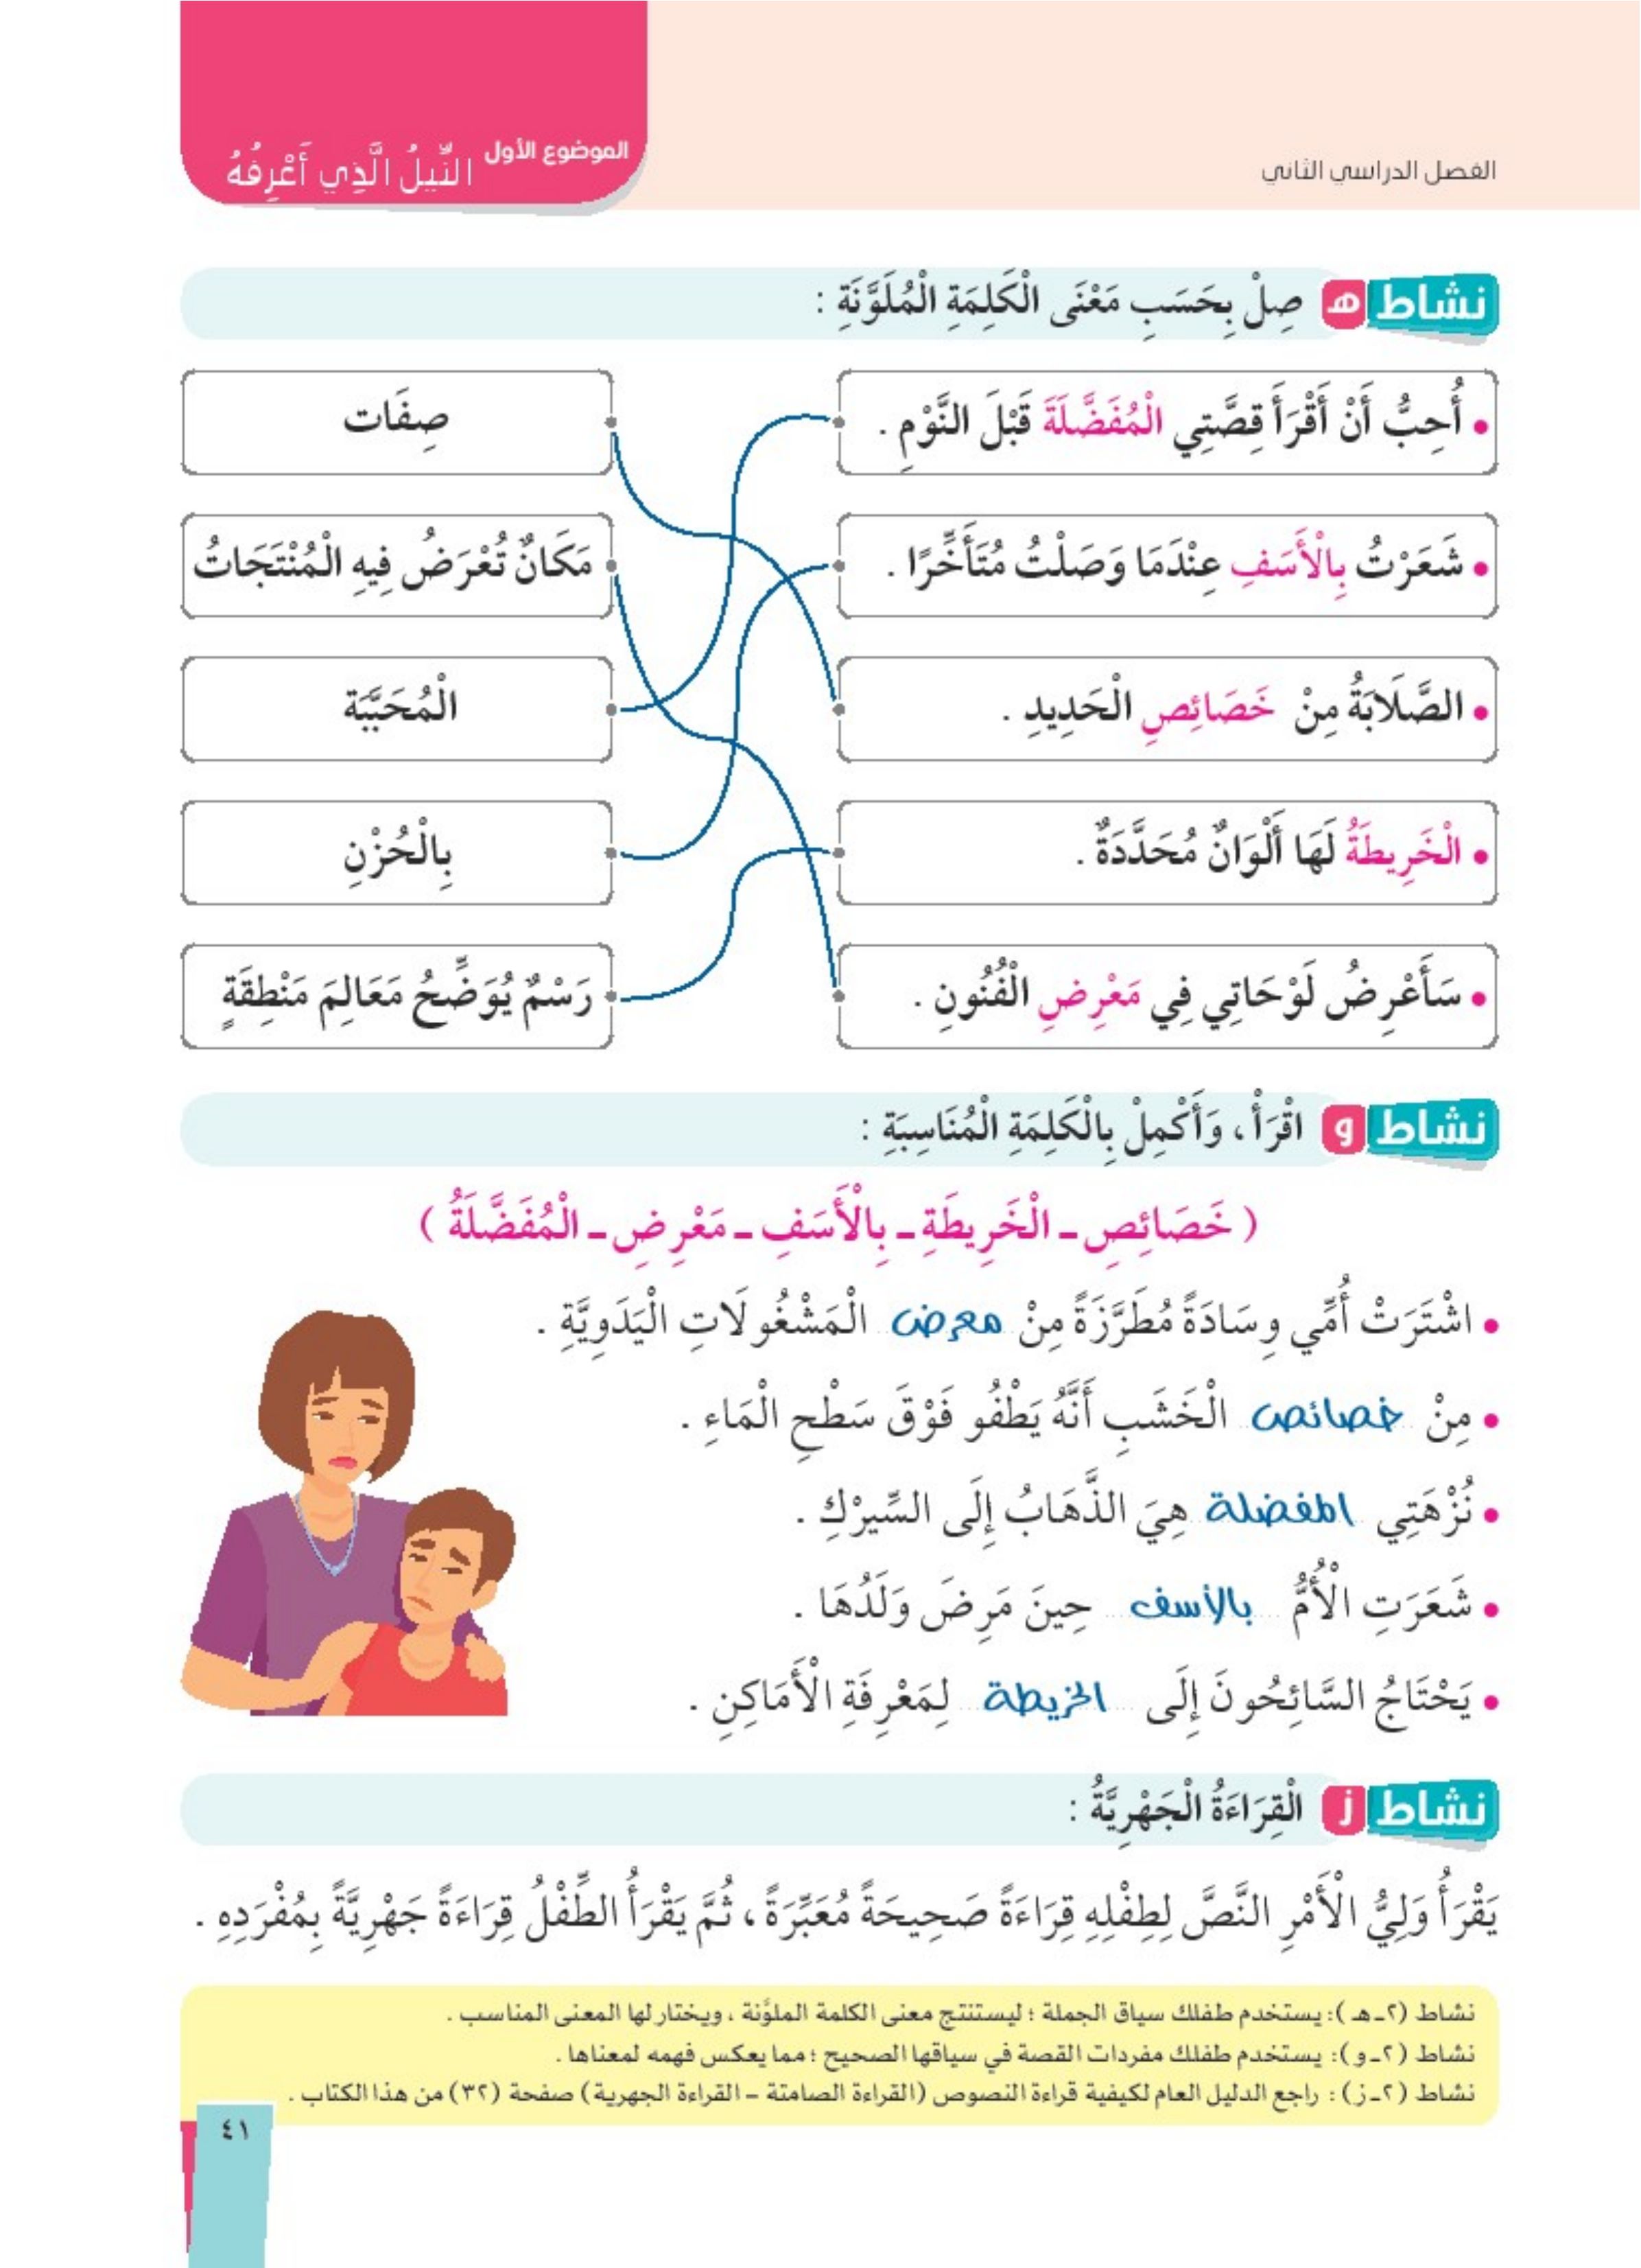 الفصل الدراسي الثاني
الموضوع الأول النِّيلُ الَّذِي أَعْرِفُهُ
نشاط هـ صِلْ بِحَسَبِ مَعْنَى الْكَلِمَةِ الْمُلَوَّنَةِ :
• أُحِبُّ أَنْ أَقْرَأَ قِصَّتِي الْمُفَضَّلَةَ قَبْلَ النَّوْمِ .
صِفَات
• شَعَرْتُ بِالْأَسَفِ عِنْدَمَا وَصَلْتُ مُتَأَخِّرًا .
مَكَانٌ تُعْرَضُ فِيهِ الْمُنْتَجَاتُ
• الصَّلَابَةُ مِنْ خَصَائِصِ الْحَدِيدِ .
الْمُحَبَّبَة
• الْخَرِيطَةُ لَهَا أَلْوَانٌ مُحَدَّدَةٌ .
بِالْحُزْنِ
• سَأَعْرِضُ لَوْحَاتِي فِي مَعْرِضِ الْفُنُونِ .
رَسْمٌ يُوَضِّحُ مَعَالِمَ مَنْطِقَةٍ
نشاط و اقْرَأْ، وَأَكْمِلْ بِالْكَلِمَةِ الْمُنَاسِبَةِ :
( خَصَائِصِ - الْخَرِيطَةِ - بِالْأَسَفِ - مَعْرِضِ - الْمُفَضَّلَةُ )
• اشْتَرَتْ أُمِّي وِسَادَةً مُطَرَّزَةً مِنْ معرض الْمَشْغُولَاتِ الْيَدَوِيَّةِ .
• مِنْ خصائص الْخَشَبِ أَنَّهُ يَطْفُو فَوْقَ سَطْحِ الْمَاءِ .
• نُزْهَتِي المفضلة هِيَ الذَّهَابُ إِلَى السِّيرْكِ .
• شَعَرَتِ الْأُمُّ بالأسف حِينَ مَرِضَ وَلَدُهَا .
• يَحْتَاجُ السَّائِحُونَ إِلَى الخريطة لِمَعْرِفَةِ الْأَمَاكِنِ .
نشاط ز الْقِرَاءَةُ الْجَهْرِيَّةُ :
يَقْرَأُ وَلِيُّ الْأَمْرِ النَّصَّ لِطِفْلِهِ قِرَاءَةً صَحِيحَةً مُعَبِّرَةً ، ثُمَّ يَقْرَأُ الطِّفْلُ قِرَاءَةً جَهْرِيَّةً بِمُفْرَدِهِ .
نشاط (٢ـ هـ ): يستخدم طفلك سياق الجملة ؛ ليستنتج معنى الكلمة الملوَّنة ، ويختار لها المعنى المناسب .
نشاط (٢ـ و): يستخدم طفلك مفردات القصة في سياقها الصحيح ؛ مما يعكس فهمه لمعناها .
نشاط (٢ـ ز) : راجع الدليل العام لكيفية قراءة النصوص (القراءة الصامتة – القراءة الجهرية) صفحة (٣٢) من هذا الكتاب .
٤١